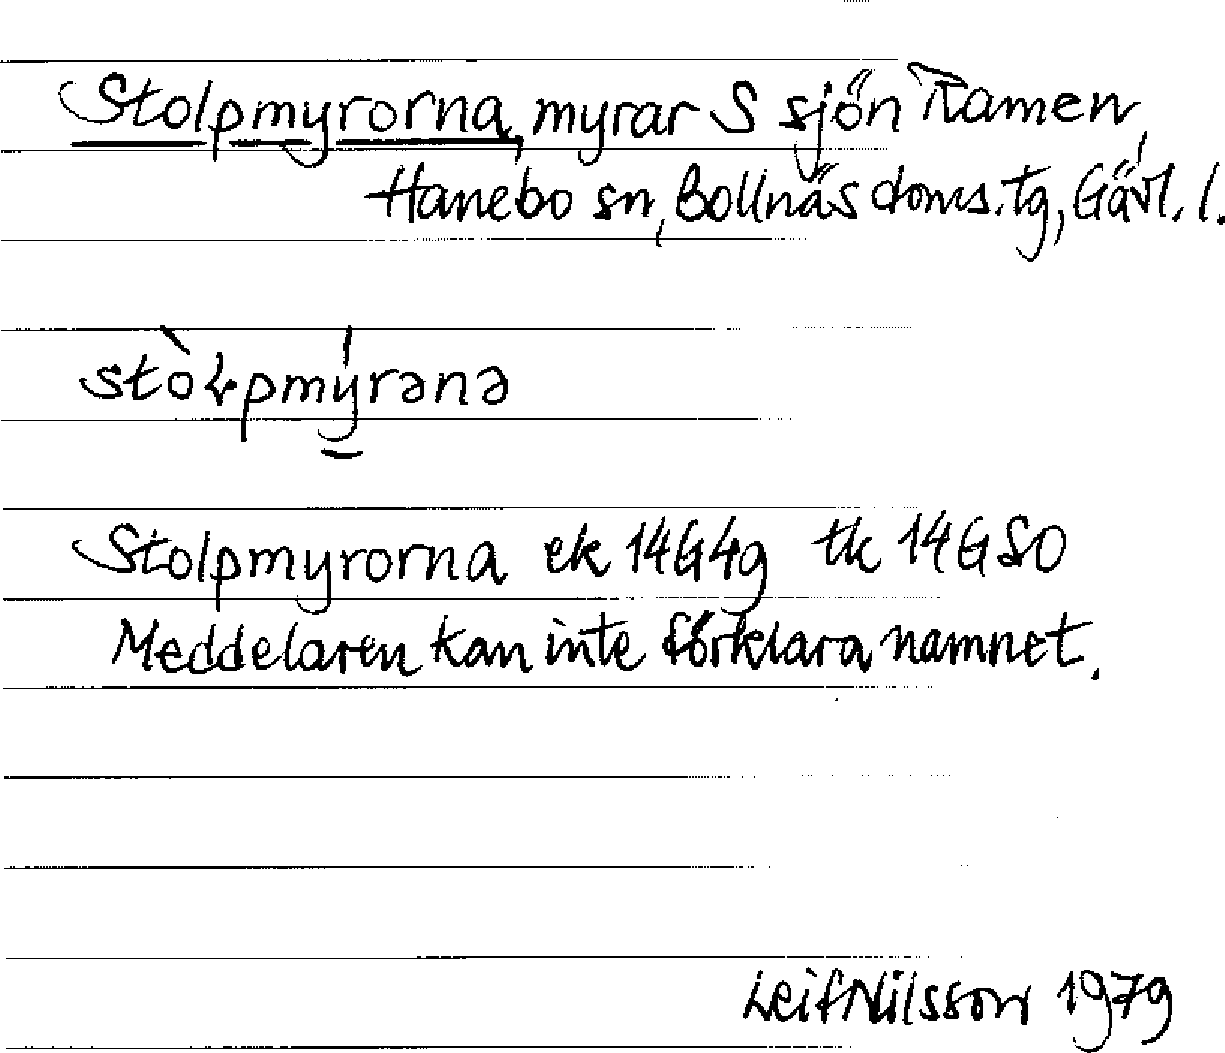 Stolpmyrorna, myrar S sjön Ramen,
Hanebo sn, Bollnäs doms. tg, Gävl. l.
stòɫpmý̲rənə
Stolpmyrorna ek 14G4g tk 14G SO
Meddelaren kan inte förklara namnet.
Leif Nilsson 1979